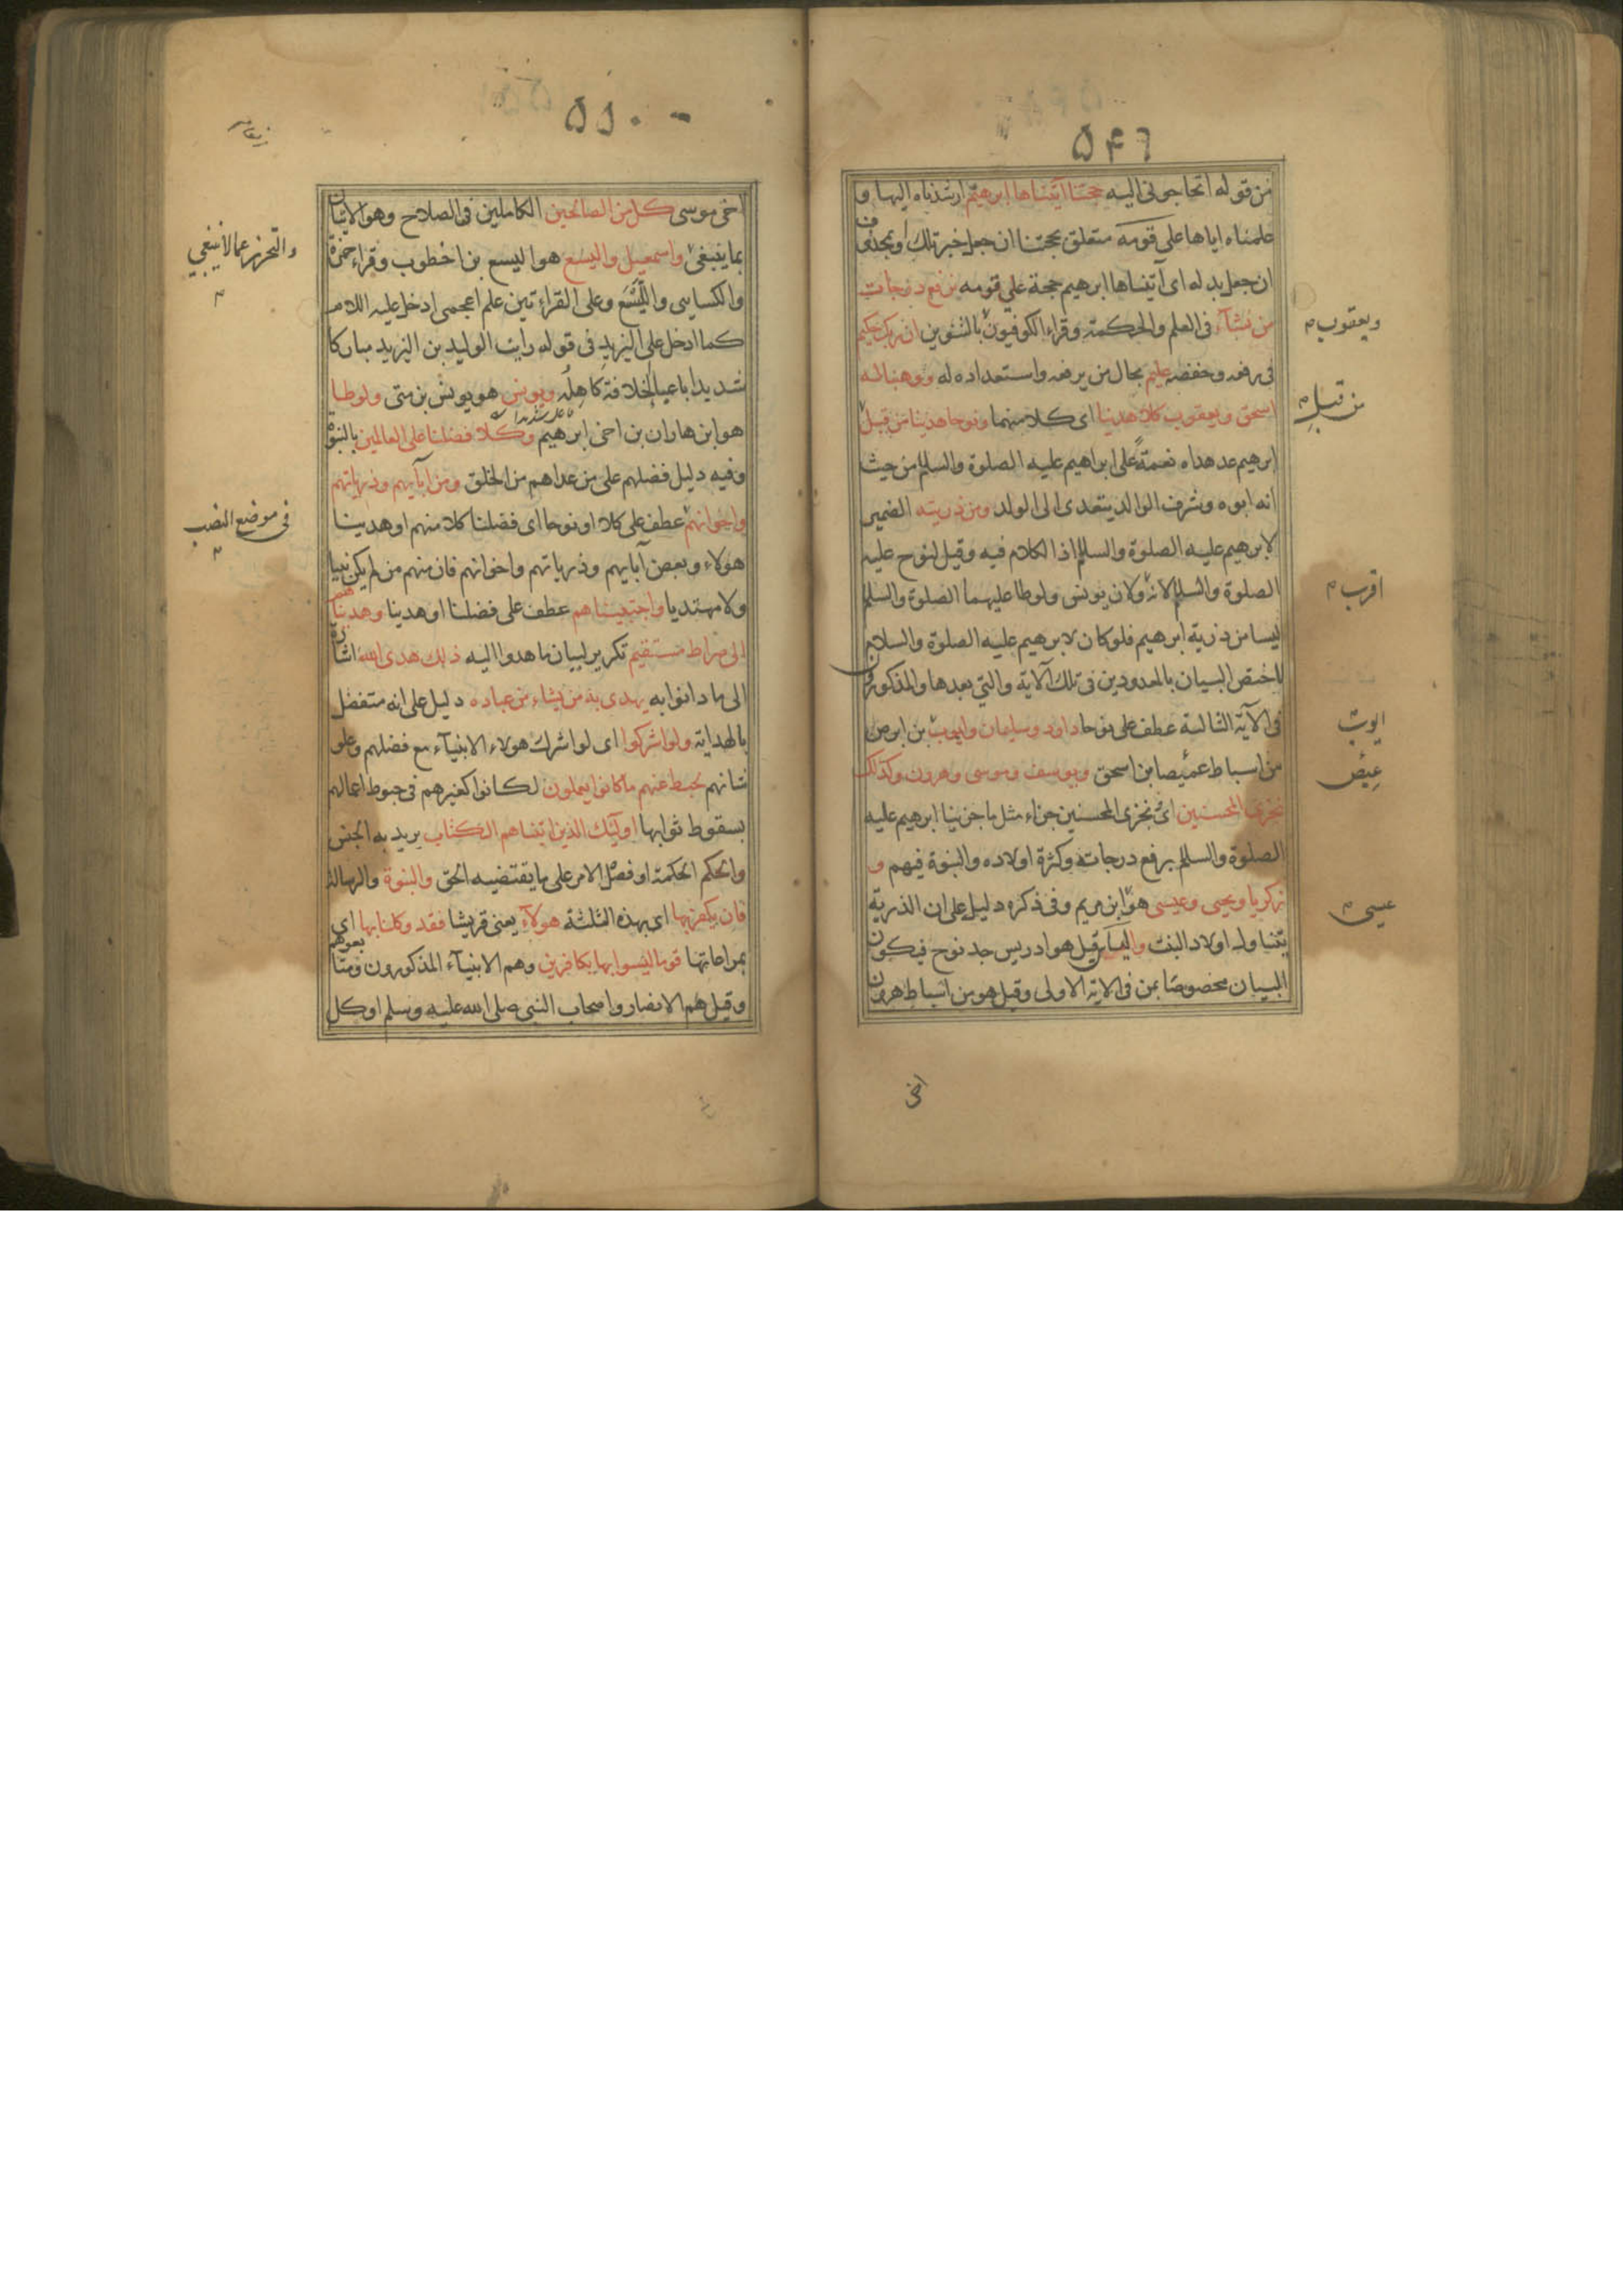 ۵۴۶
من قوله اتحاجونى اليه حجتنا آتيناها ابرهيم ارشدناه اليها و
علمناه اياها على قومه متعلق بحجتنا ان جعل خبر تلك وبمحذوف
ان جعل بدله اى آتيناها ابرهيم حجة على قومه نرفع درجات
من نشآء فى العلم والحكمة وقراء الكوفيون بالتنوين ان ربك حكيم
فى رفعه وخفضه عليم بحال من يرفعه واستعداده له ووهبنا له
اسحق ويعقوب كلا هدينا اى كلا منهما ونوحا هدينا من قبل
ابرهيم عد هداه نعمة على ابراهيم عليه الصلوة والسلم من حيث
انه ابوه وشرف الوالد يتعدى الى الولد ومن ذريته الضمير
لابرهيم عليه الصلوة والسلم اذ الكلام فيه وقيل لنوح عليه
الصلوة والسلم لانه ولان يونس ولوطا عليهما الصلوة والسلم
ليسا من ذرية ابرهيم فلو كان لابرهيم عليه الصلوة والسلام
لاختص البيان بالمعدودين فى تلك الآية والتي بعدها والمذكورون
فى الآية الثالثة عطف على نوحا داود وسليمان وايوب بن ابوص
من اسباط عميصا بن اسحق ويوسف وموسى وهرون وكذلك
نجزى المحسنين اى نجزى المحسنين جزاء مثل ما جزينا ابرهيم عليه
الصلوة والسلم برفع درجاته وكثرة اولاده والنبوة فيهم و
زكريا ويحيى وعيسى هو ابن مريم وفى ذكره دليل على ان الذرية
يتناول اولاد البنت والياس قيل هو ادريس جد نوح فيكون
البيان مخصوصا بمن فى الاية الاولى وقيل هو من اسباط هرون
ويعقوب م
من قبل م
اقرب م
ايوب
عيص
عيسى م
اخى
۵۵۰
اخى موسى كل من الصالحين الكاملين فى الصلاح وهو الاتيان
بما ينبغى واسمعيل واليسع هو اليسع بن اخطوب وقراء حمزة
والكسايى والليسع وعلى القراءتين علم اعجمى ادخل عليه اللام
كما ادخل على اليزيد فى قوله رايت الوليد بن اليزيد مباركا
شديدا باعباء الخلافة كاهله ويونس هو يونس بن متى ولوطا
هو ابن هاران بن اخى ابرهيم وكلا فضلنا على العالمين بالنبوة
وفيه دليل فضلهم على من عداهم من الخلق ومن آبآيهم وذرياتهم
واخوانهم عطف على كلا او نوحا اى فضلنا كلا منهم او هدينا
هولاء وبعض آبايهم وذرياتهم واخوانهم فان منهم من لم يكن نبيا
ولا مهتديا واجتبيناهم عطف على فضلنا او هدينا وهديناهم
الى صراط مستقيم تكرير لبيان ما هدوا اليه ذلك هدى الله اشارة
الى ما دانوا به يهدى به من يشاء من عباده دليل على انه متفضل
بالهداية ولو اشركوا اى لو اشرك هولاء الانبيآء مع فضلهم وعلو
شانهم لحبط عنهم ما كانوا يعملون لكانوا كغيرهم فى حبوط اعمالهم
بسقوط ثوابها اوليك الذين اتيناهم الكتاب يريد به الجنس
والحكم الحكمة او فصل الامر على ما يقتضيه الحق والنبوة والرسالة
فان يكفر بها اى بهذه الثلثة هولآء يعنى قريشا فقد وكلنا بها اى
بمراعاتها قوما ليسوا بها بكافرين وهم الانبيآء المذكورون ومتابعوهم
وقيل هم الانصار واصحاب النبى صلى الله عليه وسلم او كل
والتحرز عما لا ينبغي
م
فى موضع النصب
م